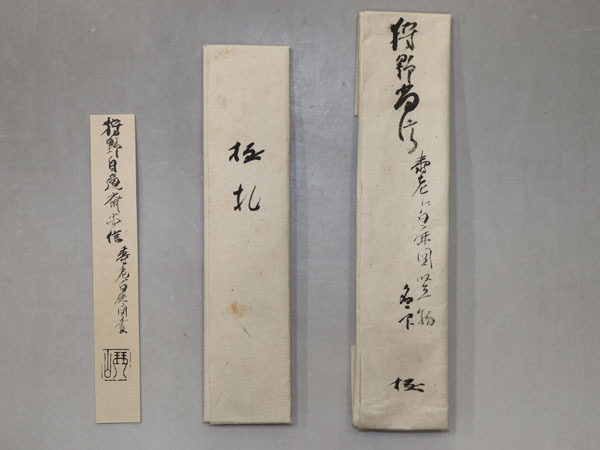 狩野尚信
寿老に白鹿図竪物
名印
極
極札
狩野自適斎尚信
寿老白鹿図